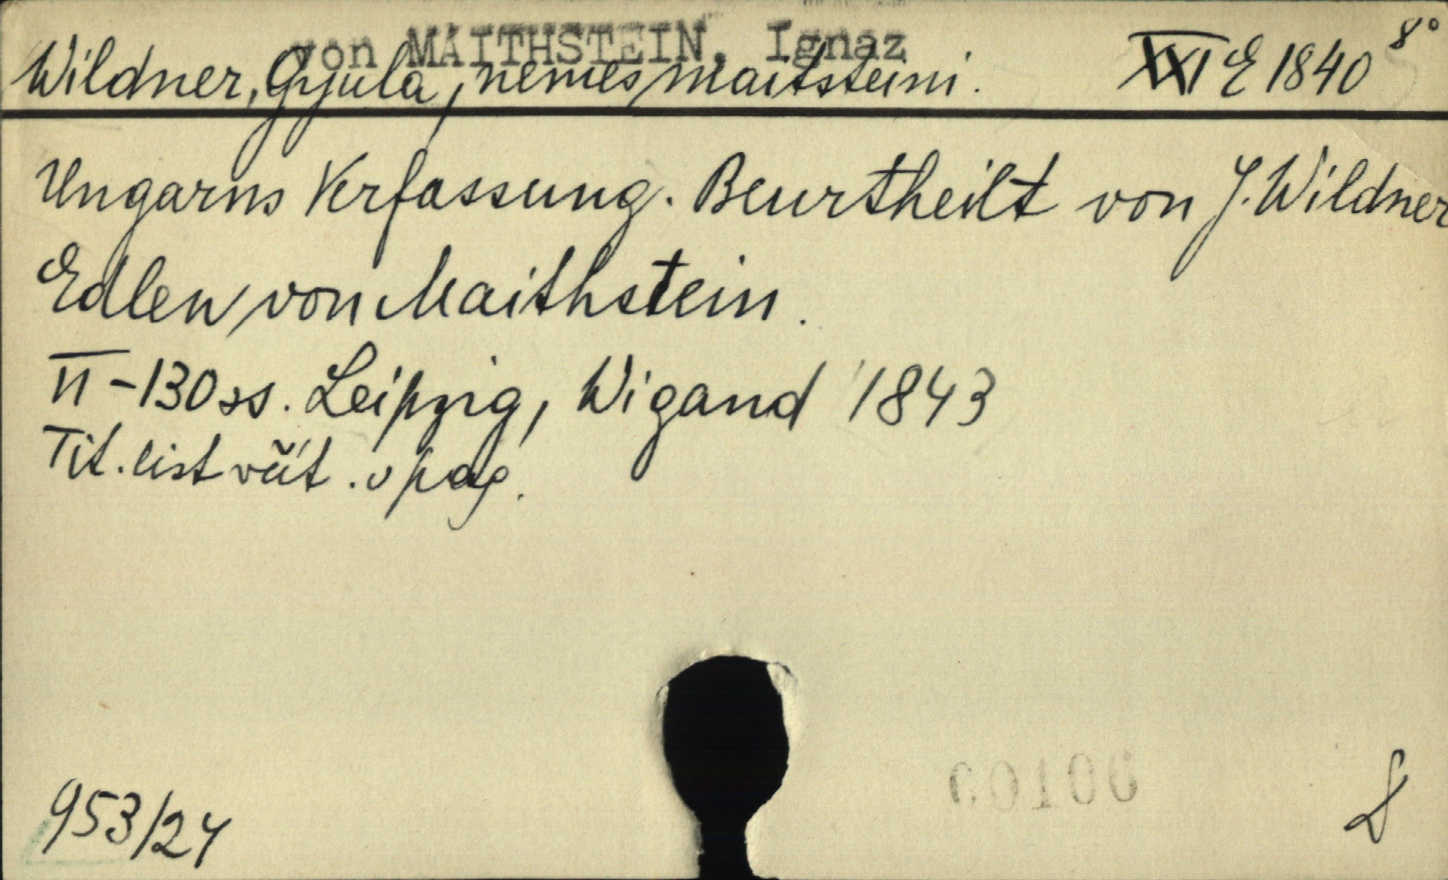 von MAITHSTEIN, Ignaz
Wildner, Gyula, nemes maitsteini. XXI E 1840 8°
Ungarns Verfassung. Beurtheilt von J. Wildner
Edlen von Maithstein.
II-130 ss. Leipzig, Wigand 1843
Tit. list včít. v pag.
953/24